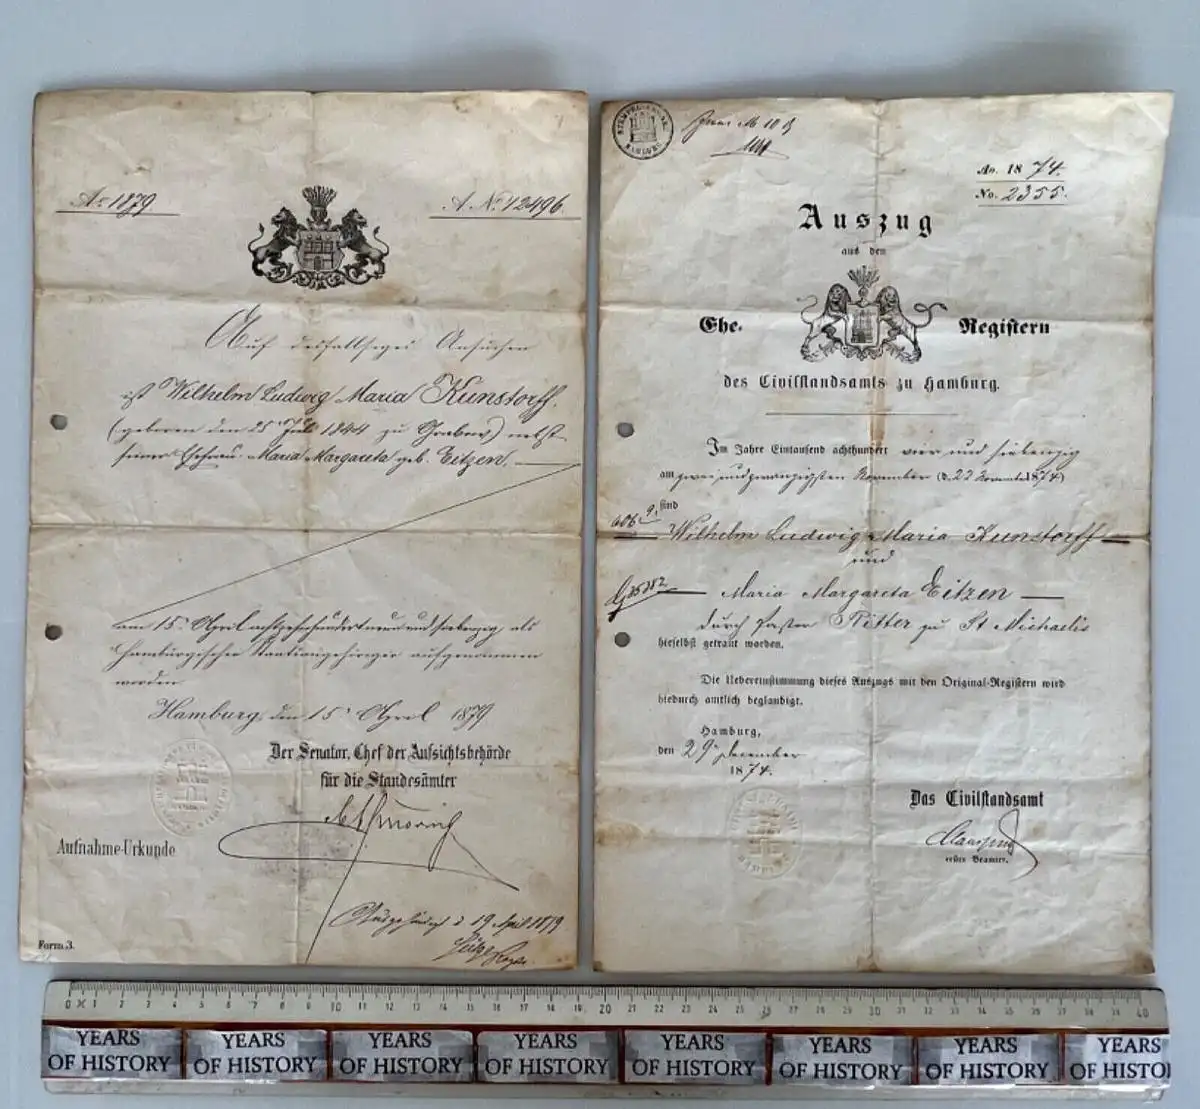 Ao 1879
A. No 12496.
Auf desfallsiges Ansuchen
ist Wilhelm Ludwig Maria Kunstorff,
(geboren den 25 Juli 1844 zu Grabow) nebst
seiner Ehefrau Maria Margareta geb. Eitzen.
am 15 April achtzehnhundertneunundsiebenzig als
Hamburgischer Staatsangehöriger aufgenommen
worden
Hamburg, den 15 April 1879
Der Senator, Chef der Aufsichtsbehörde
für die Standesämter
Aufnahme-Urkunde
d 19 April 1879
Form 3.
STEMPELCOMTOIR HAMBURG
M 10
Ao. 1874.
No. 2355.
Auszug
aus den
Ehe-Registern
des Civilstandsamts zu Hamburg.
Im Jahre Eintausend achthundert vier und siebenzig
am zwei und zwanzigsten November (d. 22 November 1874)
sind
Wilhelm Ludwig Maria Kunstorff
und
Maria Margareta Eitzen
durch Pastor Ritter zu St Michaelis
hieselbst getraut worden.
Die Uebereinstimmung dieses Auszugs mit den Original-Registern wird
hiedurch amtlich beglaubigt.
Hamburg,
den 29 December
1874.
Das Civilstandsamt
erster Beamter.
0 1 2 3 4 5 6 7 8 9 10 11 12 13 14 15 16 17 18 19 20 21 22 23 24 25 26 27 28 29 30 31 32 33 34 35 36 37 38 39 40
YEARS OF HISTORY YEARS OF HISTORY YEARS OF HISTORY YEARS OF HISTORY YEARS OF HISTORY YEARS OF HISTORY YEARS OF HISTORY YEARS OF HISTO